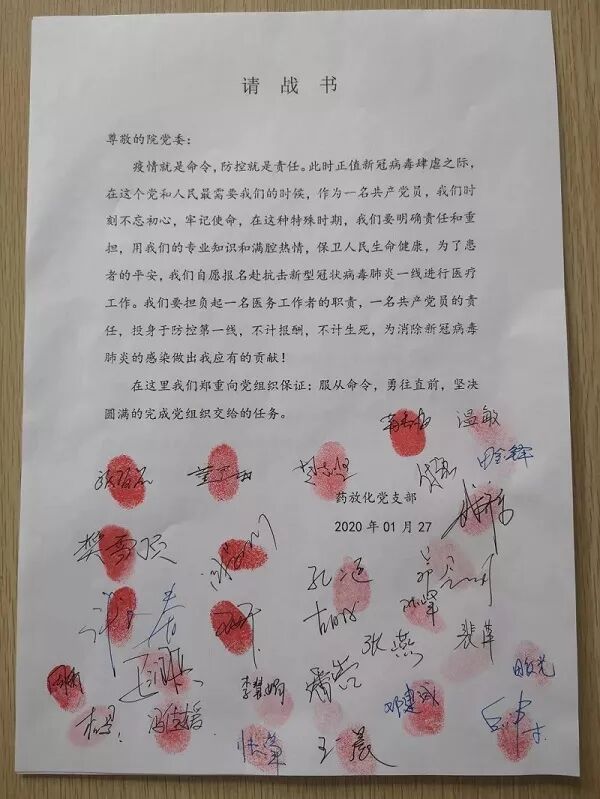 请战书
尊敬的院党委：
疫情就是命令，防控就是责任。此时正值新冠病毒肆虐之际，
在这个党和人民最需要我们的时候，作为一名共产党员，我们时
刻不忘初心，牢记使命，在这种特殊时期，我们要明确责任和重
担，用我们的专业知识和满腔热情，保卫人民生命健康，为了患
者的平安，我们自愿报名赴抗击新型冠状病毒肺炎一线进行医疗
工作。我们要担负起一名医务工作者的职责，一名共产党员的责
任，投身于防控第一线，不计报酬，不计生死，为消除新冠病毒
肺炎的感染做出我应有的贡献！
在这里我们郑重向党组织保证：服从命令，勇往直前，坚决
圆满的完成党组织交给的任务。
温敏
药放化党支部
2020 年 01 月 27
樊雪
张燕
李慧娟
邓建成
王晨